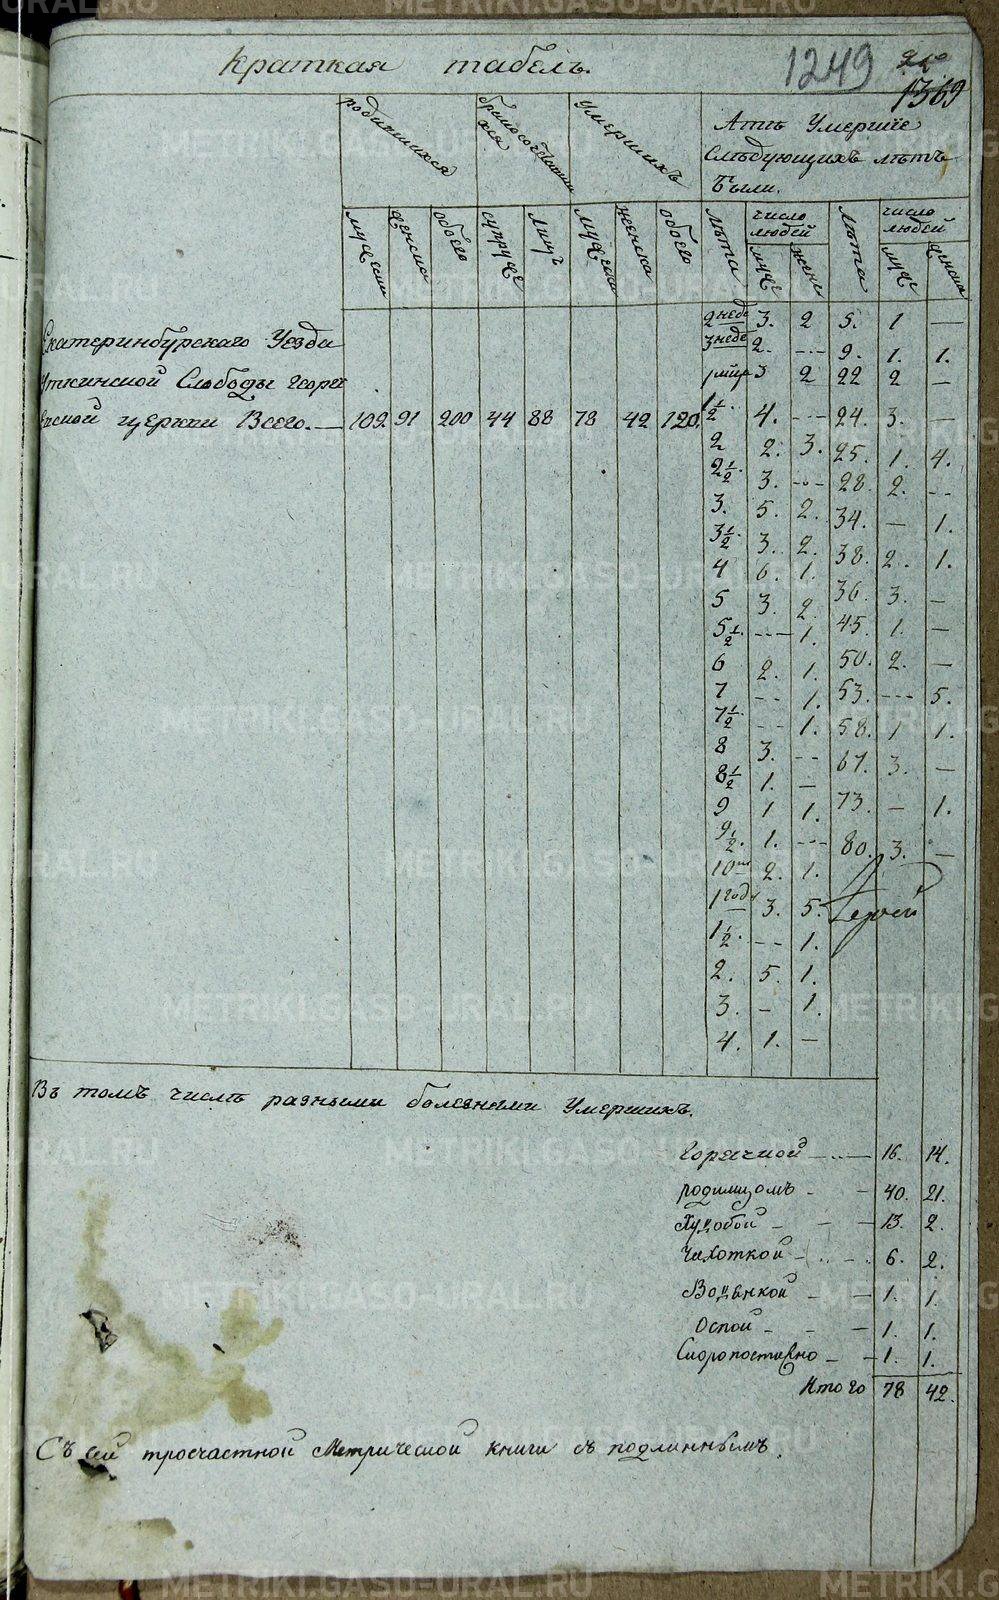 Краткая табель.
1249
1369
родившихся
бракосочетавши хся
умершихъ
Лѣтъ Умершіе
Слѣдующихъ лѣтъ
были.
мужеска
женска
обоего
супруже
лицъ
мужеска
женска
обоего
лѣта
число людей
муже
женс
лѣта
число людей
муже
женска
Екатеринбурскаго Уезда
Уткинской Слободы Георгі
евской церкви Всего. — 109 91 200 44 88 78 42 120.
2 неде 3. 2 5. 1 —
3 неде 2. --- 9. 1. 1.
3 2 22 2 —
1/2. 4. --- 24. 3. —
2 2. 3. 25. 1. 4.
2 1/2. 3. --- 28. 2. --
3. 5. 2. 34. — 1.
3 1/2. 3. 2. 38. 2. 1.
4 6. 1. 36. 3. —
5 3. 2. 45. 1. —
5 1/2. --- 1. 50. 2. —
6 2. 1. 53. --- 5.
7 -- 1. 58. 1 1.
7 1/2. -- 1. 67. 3. —
8 3. -- 73. — 1.
8 1/2 1. — 80. 3. —
9 1 1.
9 1/2. 1. ---
10 2. 1.
1 годъ 3. 5.
1 1/2. -- 1.
2. 5. 1.
3. - 1.
4. 1. —
Въ томъ числѣ разными болезнями Умершихъ.
Горячкой — 16. 14.
родимцомъ - — 40. 21.
Худобой - - — 13. 2.
Чахоткой - 6. 2.
Водянкой - — 1. 1.
Оспой - - — 1. 1.
Скоропостижно - — 1. 1.
Итого 78 42.
Съ сей троечастной Метрической книги съ подлиннымъ.
METRIKI.GASO-URAL.RU